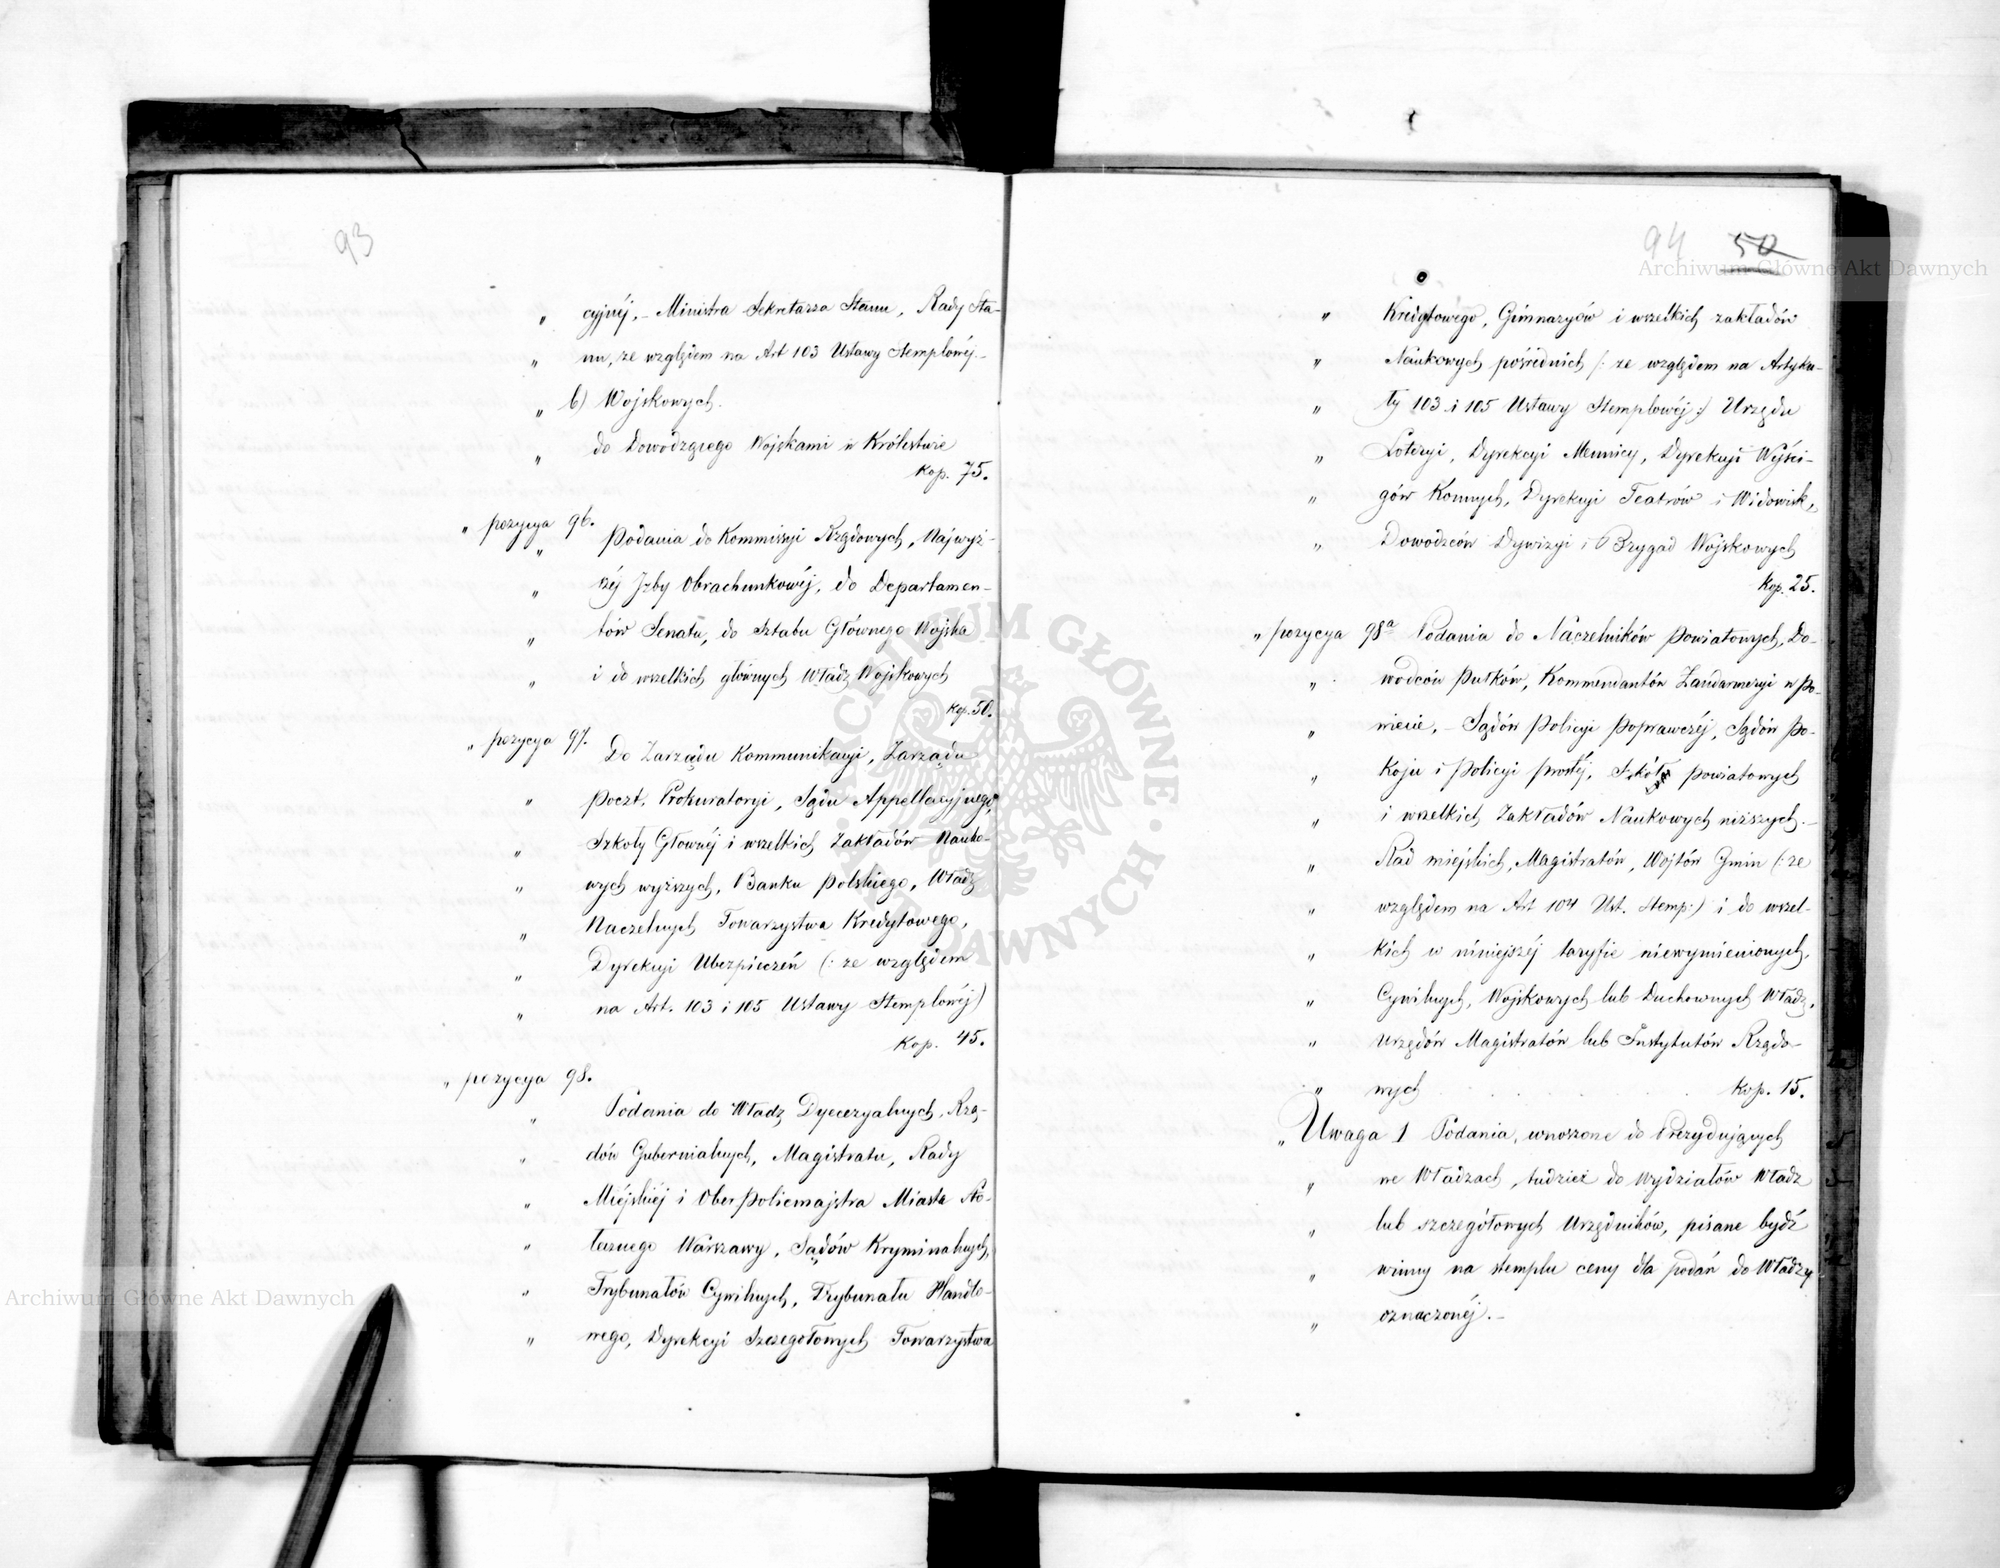 93
„ cyjnéj, – Ministra Sekretarza Stanu, Rady Sta-
„ nu, ze względem na Art 103 Ustawy Stemplowéj. –
„ b) Wojskowych.
„ do Dowodzącego Wojskami w Królestwie
Kop. 75.
„ pozycya 96.
„ Podania do Kommissyi Rządowych, Najwyż-
„ széj Izby Obrachunkowéj, do Departamen-
„ tów Senatu, do Sztabu Głównego Wojska
„ i do wszelkich głównych Władz Wojskowych
Kop. 50.
„ pozycya 97. Do Zarządu Kommunikacyi, Zarządu
„ Poczt, Prokuratoryi, Sądu Appellacyjnego,
„ Szkoły Głownéj i wszelkich Zakładów Nauko-
„ wych wyższych, Banku Polskiego, Władz
„ Naczelnych Towarzystwa Kredytowego,
„ Dyrekcyi Ubezpieczeń (: ze względem
„ na Art. 103 i 105 Ustawy Stemplowéj)
Kop. 45.
„ pozycya 98.
„ Podania do Władz Dyecezyalnych, Rzą-
„ dów Gubernialnych, Magistratu, Rady
„ Miéjskiéj i Oberpolicmajstra Miasta Sto-
„ łecznego Warszawy, Sądów Kryminalnych,
„ Trybunałów Cywilnych, Trybunału Handlo-
„ wego, Dyrekcyi Szczegółowych Towarzystwa
94 50
„ Kredytowego, Gimnazyów i wszelkich zakładów
„ Naukowych pośrednich (: ze względem na Artyku-
„ ły 103 i 105 Ustawy Stemplowéj :) Urzędu
„ Loteryi, Dyrekcyi Mennicy, Dyrekcyi Wyści-
„ gów Konnych, Dyrekcyi Teatrów i Widowisk,
„ Dowodzców Dywizyi i Brygad Wojskowych
Kop. 25.
„ pozycya 98a Podania do Naczelników Powiatowych, Do-
„ wodców Pułków, Kommendantów Żandarmeryi w Po-
„ wiecie, – Sądów Policyi Poprawczéj, Sądów Po-
„ koju i Policyi prostéj, Szkół Powiatowych
„ i wszelkich Zakładów Naukowych niższych. –
„ Rad miejskich, Magistratów, Wójtów Gmin (: ze
„ względem na Art 104 Ust. Stemp:) i do wszel-
„ kich w niniejszéj taryfie niewymienionych,
„ Cywilnych, Wojskowych lub Duchownych Władz,
„ Urzędów Magistratów lub Instytutów Rządo-
„ wych Kop. 15.
„ Uwaga 1 Podania, wnoszone do Prezydujących
„ we Władzach, tudzież do Wydziałów Władz
„ lub szczegółowych Urzędników, pisane bydź
„ winny na stemplu ceny dla podań do Władzy
„ oznaczonéj. –
Archiwum Główne Akt Dawnych
Archiwum Główne Akt Dawnych
ARCHIWUM GŁÓWNE AKT DAWNYCH